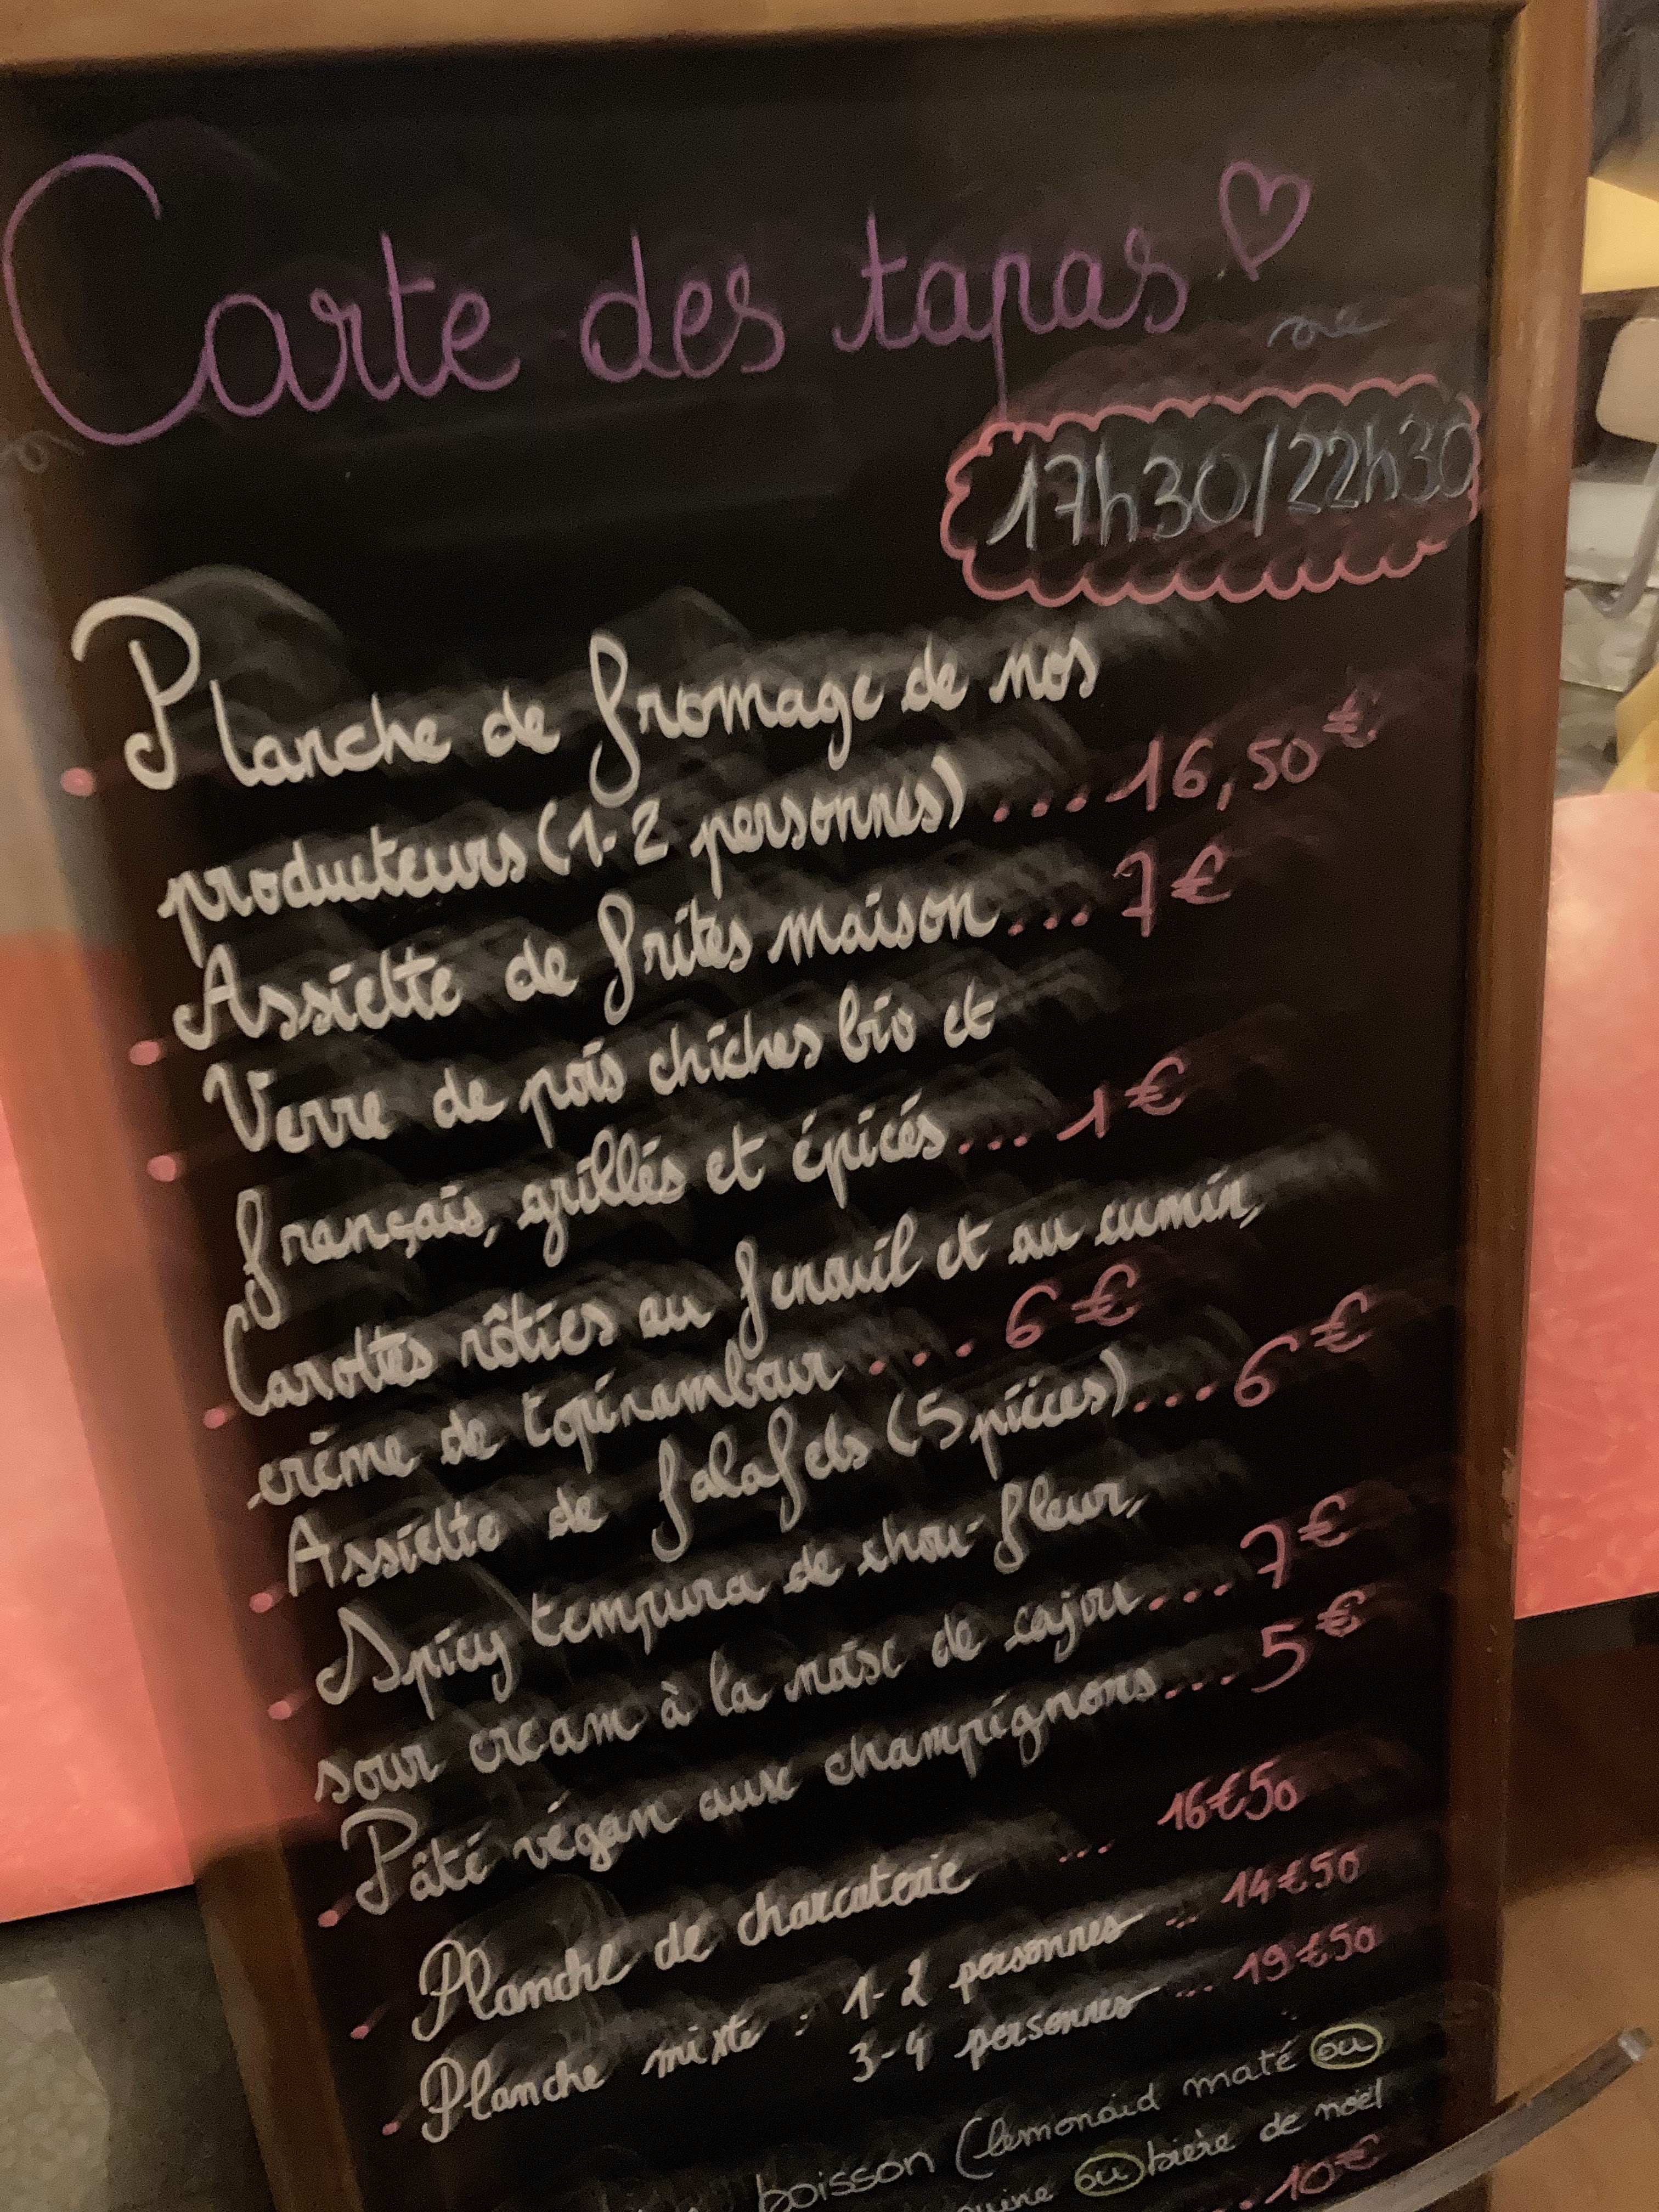 Carte des tapas
17h30/22h30
Planche de fromage de nos
producteurs (1-2 personnes) ....16,50€
Assiette de frites maison... 7€
Verre de pois chiches bio et
français, grillés et épicés... 1€
Carottes rôties au fenouil et au cumin,
crème de topinambour .... 6€
Assiette de falafels (5 pièces)... 6€
Spicy tempura de chou-fleur,
sour cream à la noix de cajou... 7€
Pâté végan aux champignons.... 5€
Planche de charcuterie ... 16€50
Planche mixte : 1-2 personnes ... 14€50
3-4 personnes ... 19€50
boisson (lemonaid maté ou
ou bière de noël
10€